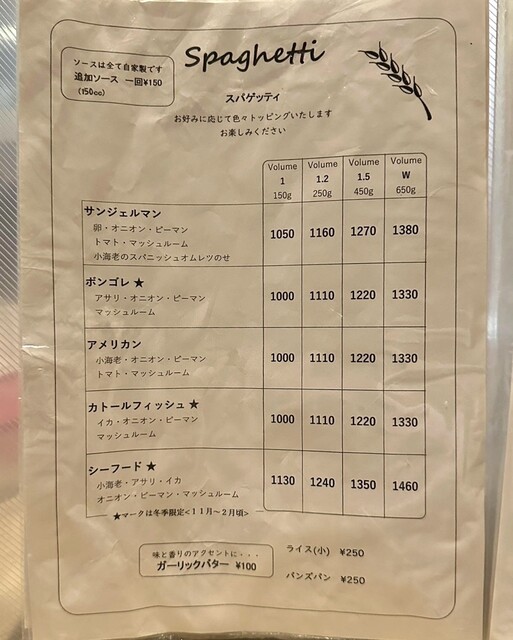 Spaghetti
ソースは全て自家製です
追加ソース 一回¥150
(150cc)
スパゲッティ
お好みに応じて色々トッピングいたします
お楽しみください
Volume 1 150g Volume 1.2 250g Volume 1.5 450g Volume W 650g
サンジェルマン 1050 1160 1270 1380
卵・オニオン・ピーマン
トマト・マッシュルーム
小海老のスパニッシュオムレツのせ
ボンゴレ★ 1000 1110 1220 1330
アサリ・オニオン・ピーマン
マッシュルーム
アメリカン 1000 1110 1220 1330
小海老・オニオン・ピーマン
トマト・マッシュルーム
カトールフィッシュ★ 1000 1110 1220 1330
イカ・オニオン・ピーマン
マッシュルーム
シーフード★ 1130 1240 1350 1460
小海老・アサリ・イカ
オニオン・ピーマン・マッシュルーム
★マークは冬季限定<11月～2月頃>
味と香りのアクセントに・・・
ガーリックバター ¥100
ライス(小) ¥250
バンズパン ¥250